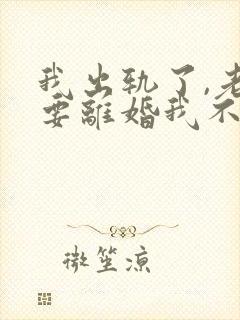 我出轨了,老
要離婚我不
微笙凉